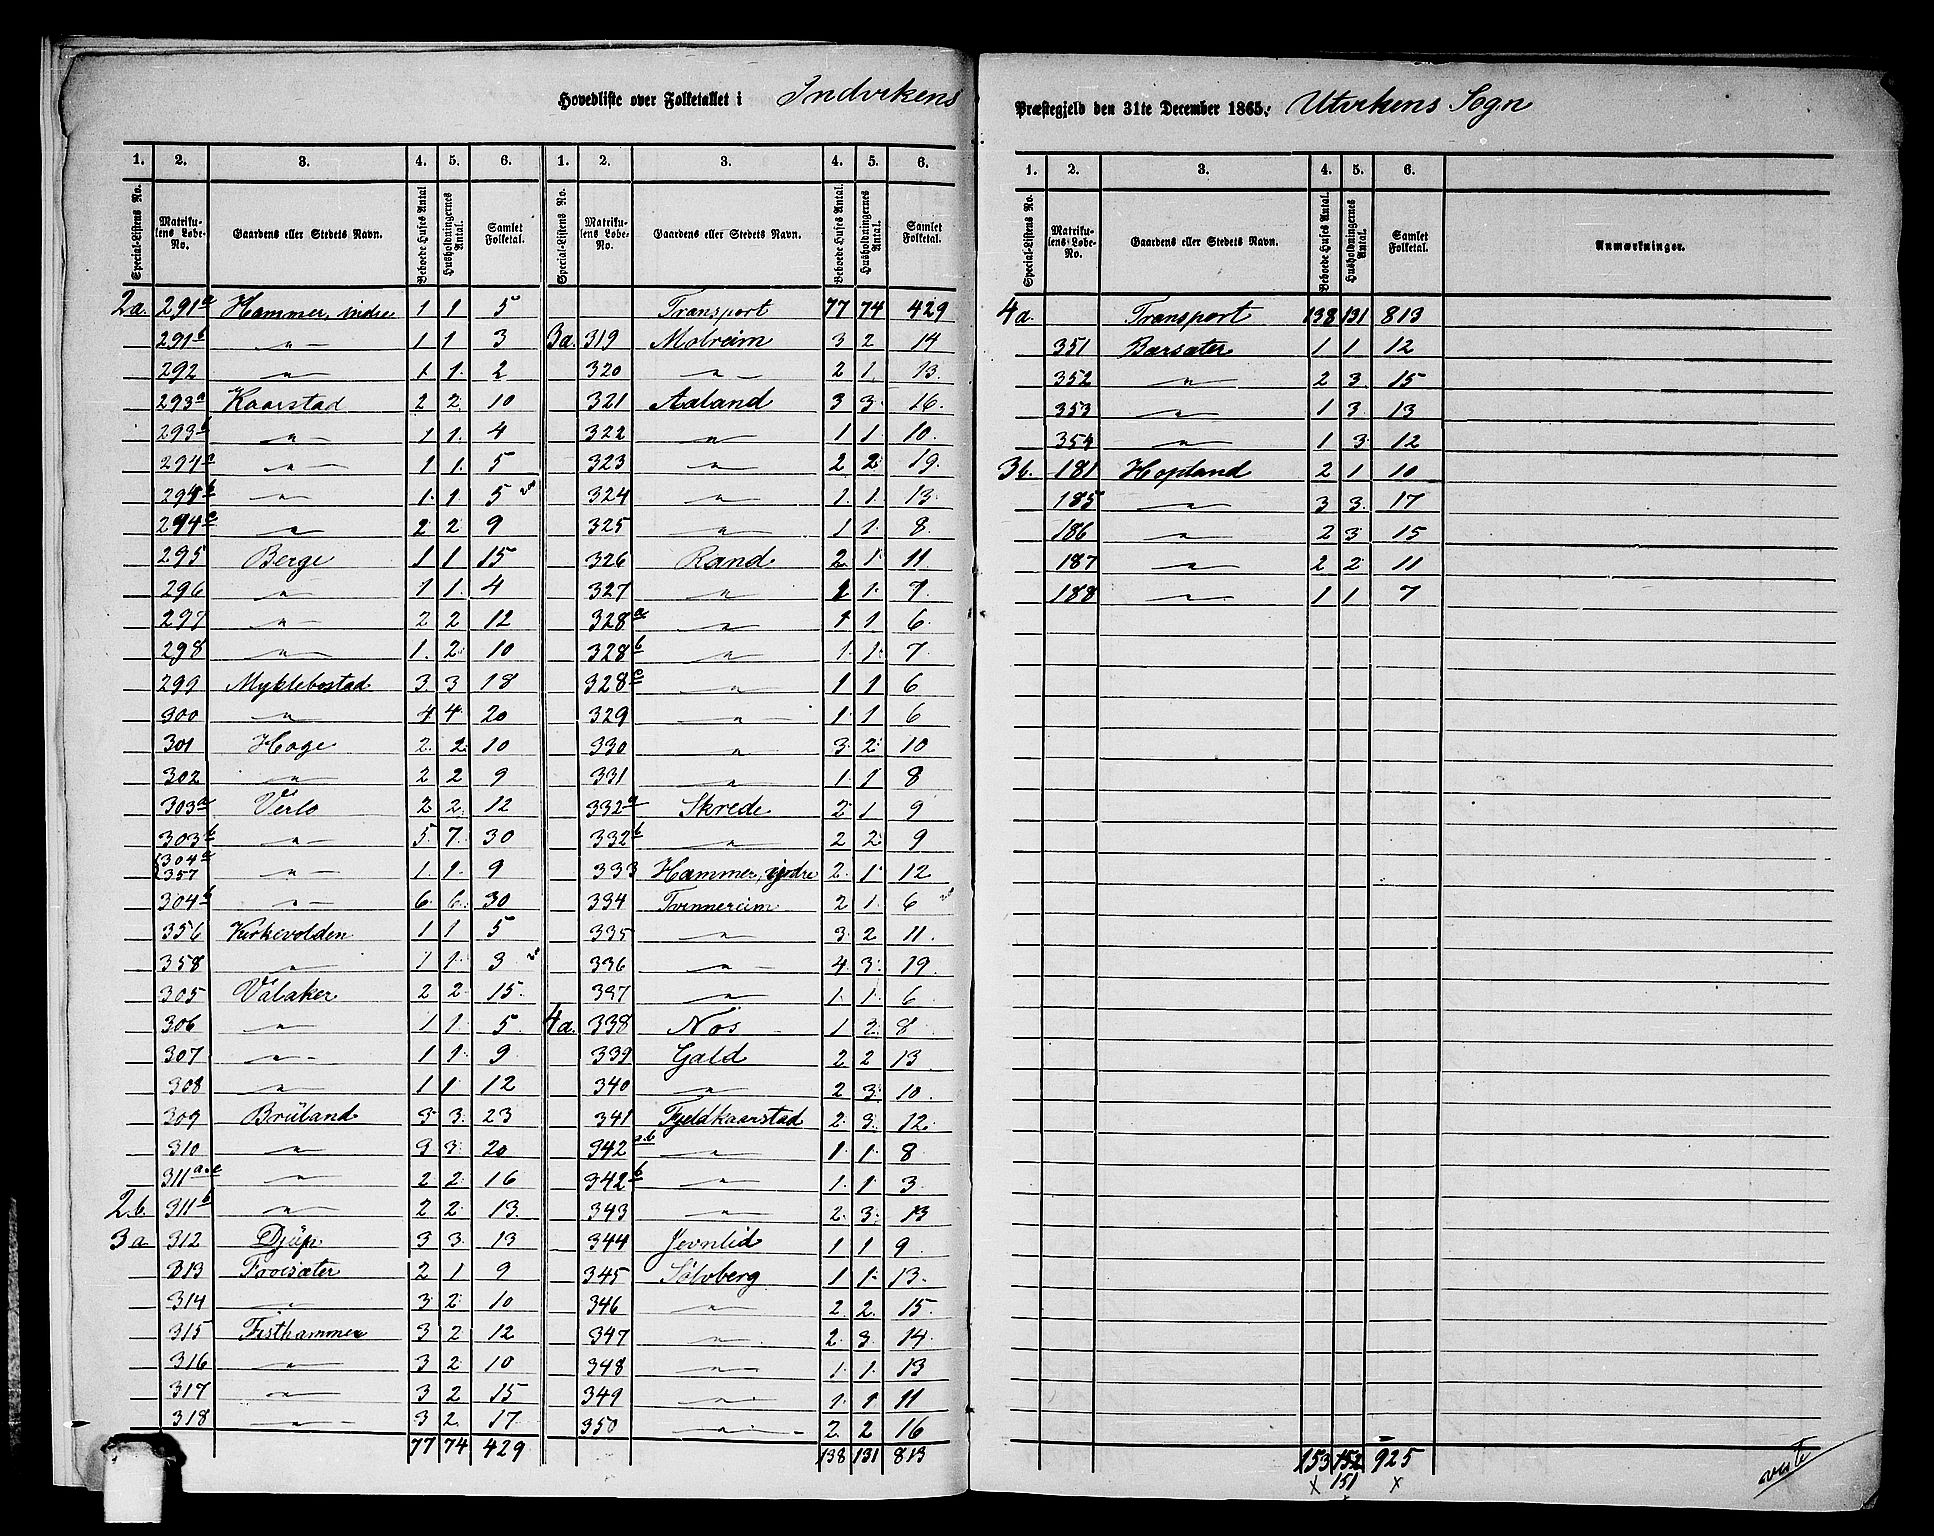 Hovedliste over Folketallet i Indvikens Præstegjeld den 31te December 1865; Utvikens Sogn
1. 2. 3. 4. 5. 6. 1. 2. 3. 4. 5. 6.
Special-Listens No. Matrikulens Løbe-No. Gaardens eller Stedets Navn. Beboede Huses Antal Husholdningernes Antal. Samlet Folketal. Special-Listens No. Matrikulens Løbe-No. Gaardens eller Stedets Navn. Beboede Huses Antal. Husholdningernes Antal. Samlet Folketal.
2a. 291a Hammer, indre 1 1 5 Transport 77 74 429
291b -"- 1 1 3 3a. 319 Molreim 3 2 14
292 -"- 1 1. 2 320 -"- 2 1. 13.
293a Kaarstad 2 2. 10 321 Aaland 3 3. 16.
293b -"- 1 1. 4 322 -"- 1 1. 10.
294a -"- 1 1. 5 323 -"- 2 2. 19.
294b -"- 1. 1. 5 324 -"- 1. 1. 13.
294c -"- 2 2 9 325 -"- 1 1. 8.
295 Berge 1 1 15 326 Rand 2. 1. 11.
296 -"- 1 1. 4 327 -"- 1 1. 7.
297 -"- 2 2 12 328a -"- 1 1 6.
298 -"- 1. 2. 10 328b -"- 1. 1. 7.
299 Myklebostad 3 3 18 328c -"- 1 1 6
300 -"- 4 4. 20 329 -"- 1. 1 6
301 Hage 2. 2. 10 330 -"- 3. 2. 10
302 -"- 2 2 9 331 -"- 1. 1 8
303a Verlo 2 2. 12 332a Skrede 2. 1 9
303b -"- 5. 7. 30 332b -"- 2 2. 9
{304a 357 -"- 1. 1. 9 333 Hammer, yndre 2. 1. 12
304b -"- 6. 6. 30 334 Tvinnereim 2 1. 6
356 Kirkevolden 1 1 5 335 -"- 3 2 11.
358 -"- 1 1. 3 336 -"- 4. 3. 19.
305 Valaker 2 2. 15. 337 -"- 1. 1. 6
306 -"- 1 1. 5 4a. 338 Nos 1 2. 8
307 -"- 1 1. 9 339 Gald 2 2 13
308 -"- 1 1. 12 340 -"- 2 3. 10.
309 Brüland 3 3. 23 341 Fjeldkaarstad 2. 3. 12.
310 -"- 3 3. 20 342a.b -"- 1. 1. 8
311a.c -"- 2 2. 16 342b -"- 1. 1. 3.
2.b. 311b -"- 2 2. 13. 343 -"- 2. 3. 13
3a 312 Djúp 3 3. 13 344 Jevnlid 1 1 9.
313 Faaesæter 2 1 9 345 Sölvberg 1 1. 13.
314 -"- 3. 2. 10 346 -"- 2. 2. 15.
315 Fisthammer 3 2. 12 347 -"- 2. 3. 14.
316 -"- 3 2. 10 348 -"- 1. 1. 13
317 -"- 3 2 15 349 -"- 1. 1 11
318 -"- 3 2. 17. 350 -"- 2. 2 16
77 74 429 138 131 813
1. 2. 3. 4. 5. 6.
Special-Listens No. Matrikulens Løbe-No. Gaardens eller Stedets Navn. Beboede Huses Antal. Husholdningernes Antal. Samlet Folketal. Anmærkninger.
4a. Transport 138 131 813
351 Bærsæter 1 1 12
352 -"- 2 3. 15
353 -"- 1 3. 13
354 -"- 1 3. 12
3b. 181 Hopland 2 1 10
185 -"- 3 3. 17
186 -"- 2 3 15
187 -"- 2 2 11
188 -"- 1 1 7
153 152 925
x 151 x